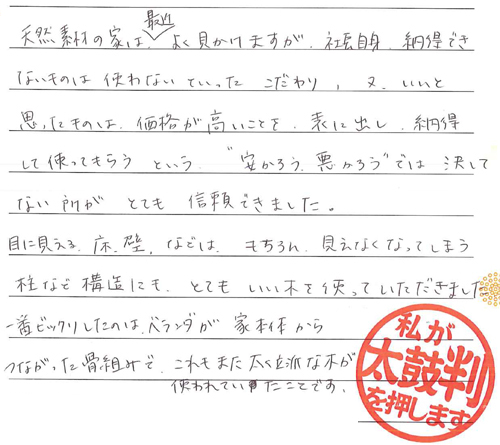 天然素材の家は、最近よく見かけますが、社長自身、納得でき
ないものは使わないといったこだわり、又、いいと
思ったものは、価格が高いことを、表に出し、納得
して使ってもらうという、"安かろう、悪かろう"では決して
ない所がとても信頼できました。
目に見える、床、壁、などは、もちろん、見えなくなってしまう
柱など構造にも、とてもいい木を使っていただきました
一番ビックリしたのは、ベランダが家本体から
つながった骨組みで、これもまた太く立派な木が
使われていたことです。
私が
太鼓判
を押します